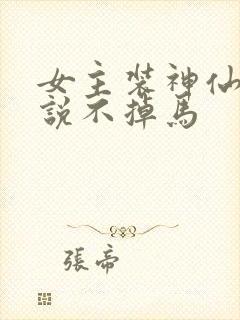 女主裝神仙
說不掉馬
張帝